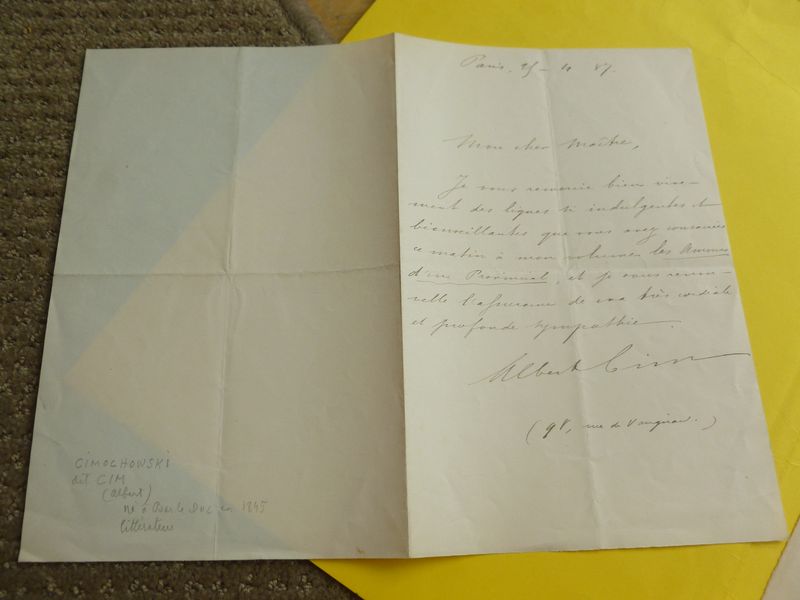 Paris, 25 – 4 87.
Mon cher Maître,
Je vous remercie bien vive-
ment des lignes si indulgentes et
bienveillantes que vous avez consacrées
ce matin à mon volume les Amours
d'un Provincial, et je vous renou-
velle l'assurance de ma très cordiale
et profonde sympathie.
Albert Cim
(98, rue de Vaugirard.)
CIMOCHOWSKI
dit CIM
(Albert)
né à Bar le Duc en 1845
littérateur